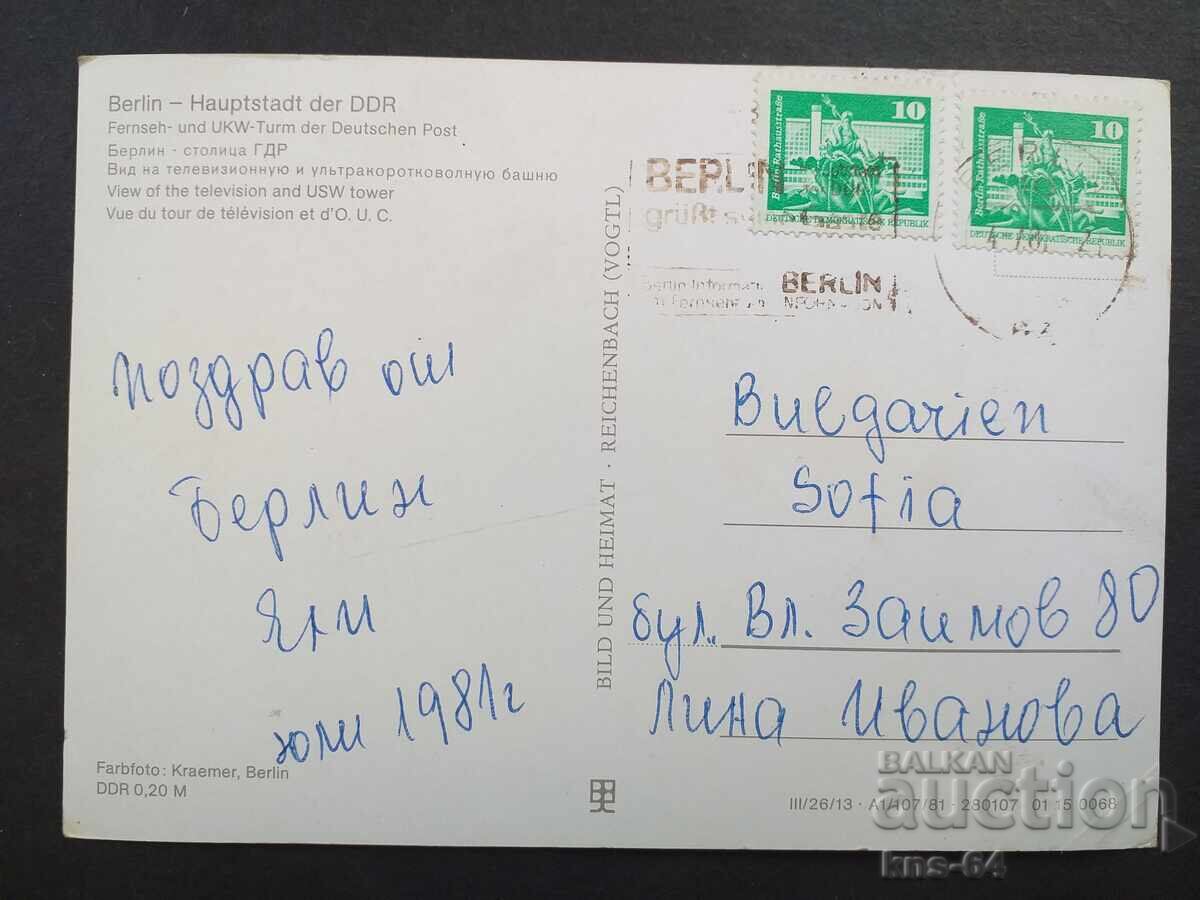 Berlin – Hauptstadt der DDR
Fernseh- und UKW-Turm der Deutschen Post
Берлин - столица ГДР
Вид на телевизионную и ультракоротковолную башню
View of the television and USW tower
Vue du tour de télévision et d'O. U. C.
поздрав от
Берлин
Яни
юли 1981г
Farbfoto: Kraemer, Berlin
DDR 0,20 M
BILD UND HEIMAT · REICHENBACH (VOGTL)
10
Berlin-Rathausstraße
DEUTSCHE DEMOKRATISCHE REPUBLIK
10
Berlin-Rathausstraße
DEUTSCHE DEMOKRATISCHE REPUBLIK
BERLIN
grüßt
BERLIN
INFORMATION
Bulgarien
Sofia
бул. Вл. Заимов 80
Лина Иванова
III/26/13 · A1/107/81 · 280107 01 15 0068
BALKAN
auction
kns-64